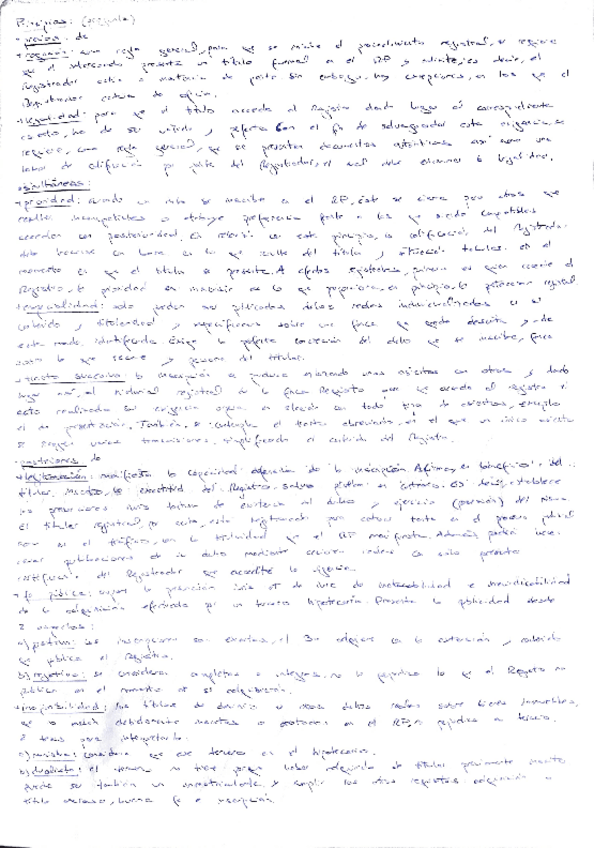 Principios:
- previos: de
+ rogación: una regla general, para que se inicie el procedimiento registral, se requiere
que el interesado presente un título formal en el RP y
Registrador actúa a instancia de parte. Sin embargo, hay excepciones, en las que el
Registrador actúa de oficio.
+ legalidad: para que el título acceda al Registro dando lugar al correspondiente
asiento, ha de ser válido y perfecto. Con el fin de salvaguardar esta exigencia, se
requiere, como regla general, que se presenten documentos auténticos así como una
labor de calificación por parte del Registrador, el cual debe examinar la legalidad.
- simultáneos:
+ prioridad: cuando un se inscribe en el RP, éste se cierra para otros que
resulten incompatibles u otorga preferencia frente a los que siendo compatibles
accedan con posterioridad. En relación con este principio, la calificación del Registrador
debe hacerse en base a lo que resulte del título y situación tabular en el
momento en que el título se presente. A efectos
Registro, la prioridad
+ especialidad: solo pueden ser publicados reales individualizados en su
contenido y titularidad y sobre una finca que quede descrita y de
este modo, identificada. Exige la perfecta concreción del derecho que se inscribe, finca
sobre la que recae y persona del titular.
+ tracto sucesivo: la inscripción se produce apoyando unos asientos en otros y dando
lugar así, al historial registral de la finca. Requisito para que acceda al registro
es el de presentación. También, se contempla el tracto abreviado, en el que un único asiento
se recogen varias transmisiones, simplificando el contenido del Registro.
- posteriores: de
+ legitimación: manifiesta la capacidad de la inscripción. Afirma, en beneficio del
titular inscrito, la exactitud del Registro, salvo prueba en contrario. Es decir, establece
una presunción iuris tantum de existencia del derecho y ejercicio (posesión) del mismo.
El titular registral, por ello, está legitimado para actuar tanto en el proceso judicial
como en el tráfico, con la titularidad que el RP manifiesta. Además podrá
de su derecho mediante
certificación del Registrador que acredite la vigencia.
+ fe pública: supone la presunción iuris et de iure de inatacabilidad e
de la adquisición efectuada por un tercero hipotecario. Presenta la publicidad desde
2 vertientes:
a) positiva: las inscripciones son exactas, el 3º adquiere en la extensión y contenido
que publica el Registro.
b) negativa: se consideran completas e íntegras, no le perjudica lo que el Registro no
publica en el momento de su adquisición.
+ inoponibilidad: los títulos de dominio u otros derechos reales sobre bienes inmuebles,
que no estén debidamente inscritos o anotados en el RP, no perjudican a tercero.
2 tesis para interpretarlo:
a) monista: considera que ese tercero es el hipotecario.
b) dualista: el tercero no tiene porqué haber adquirido de titular previamente inscrito,
puede ser también un inmatriculante, y cumplir los otros requisitos: adquisición a
título oneroso, buena fe e inscripción.